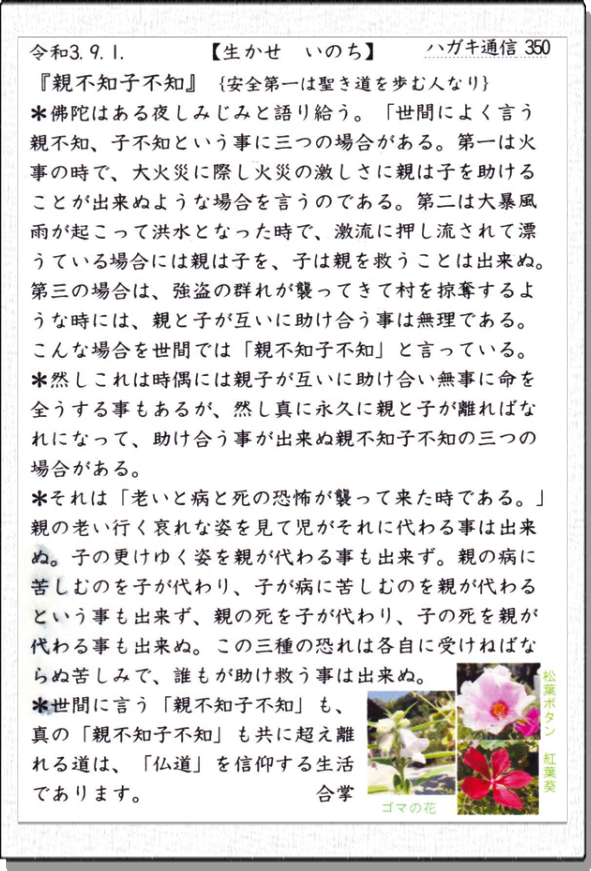 令和3.9.1. 【生かせ いのち】 ハガキ通信 350
『親不知子不知』 {安全第一は聖き道を歩む人なり}
＊佛陀はある夜しみじみと語り給う。「世間によく言う
親不知、子不知という事に三つの場合がある。第一は火
事の時で、大火災に際し火災の激しさに親は子を助ける
ことが出来ぬような場合を言うのである。第二は大暴風
雨が起こって洪水となった時で、激流に押し流されて漂
うている場合には親は子を、子は親を救うことは出来ぬ。
第三の場合は、強盗の群れが襲ってきて村を掠奪するよ
うな時には、親と子が互いに助け合う事は無理である。
こんな場合を世間では「親不知子不知」と言っている。
＊然しこれは時偶には親子が互いに助け合い無事に命を
全うする事もあるが、然し真に永久に親と子が離ればな
れになって、助け合う事が出来ぬ親不知子不知の三つの
場合がある。
＊それは「老いと病と死の恐怖が襲って来た時である。」
親の老い行く哀れな姿を見て児がそれに代わる事は出来
ぬ。子の更けゆく姿を親が代わる事も出来ず。親の病に
苦しむのを子が代わり、子が病に苦しむのを親が代わる
という事も出来ず、親の死を子が代わり、子の死を親が
代わる事も出来ぬ。この三種の恐れは各自に受けねばな
らぬ苦しみで、誰もが助け救う事は出来ぬ。
＊世間に言う「親不知子不知」も、
真の「親不知子不知」も共に超え離
れる道は、「仏道」を信仰する生活
であります。 合掌
松葉ボタン
紅葉葵
ゴマの花